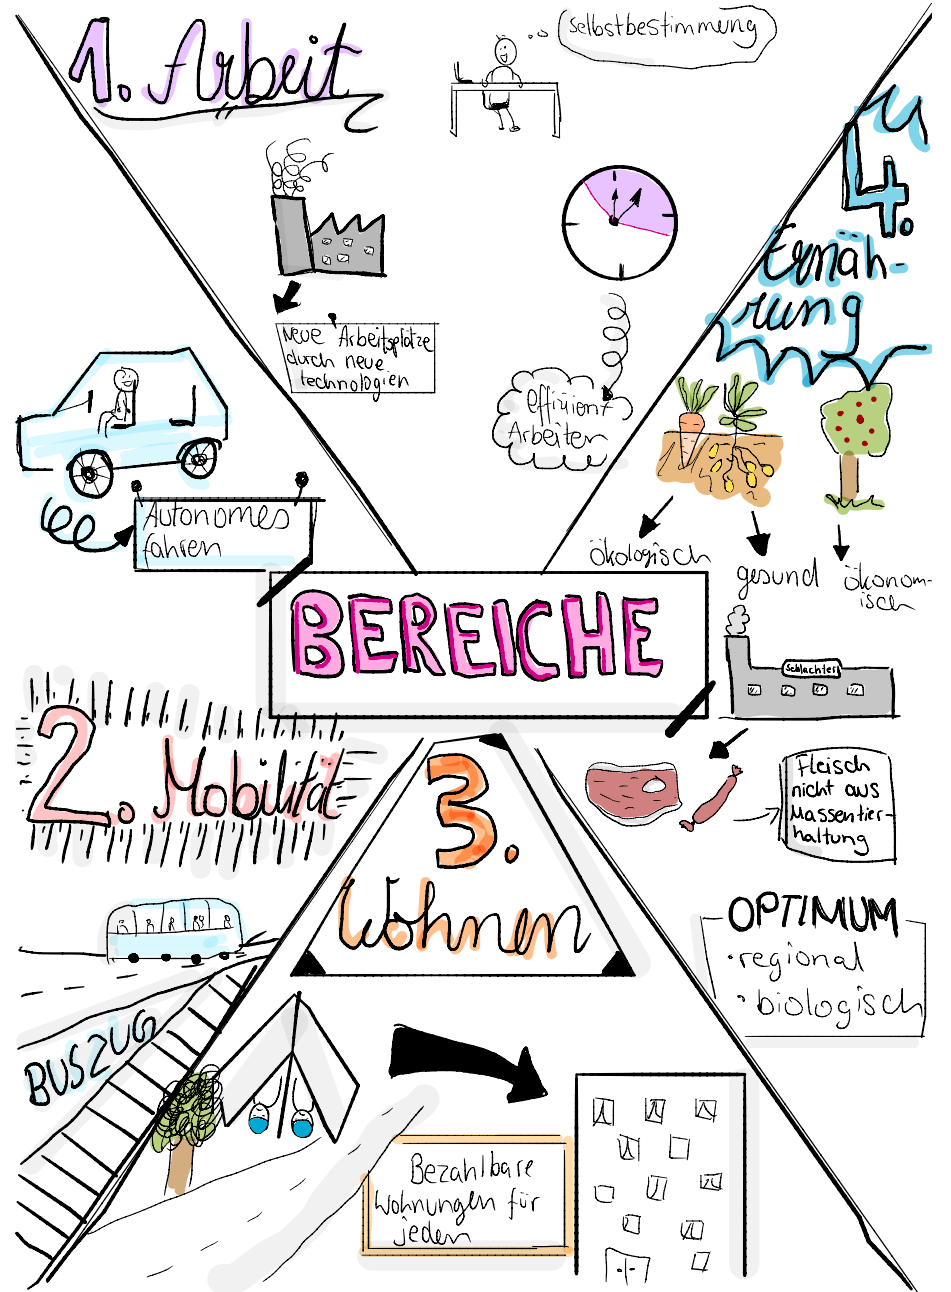 1. Arbeit
Selbstbestimmung
Neue Arbeitsplätze
durch neue
technologien
effizient
Arbeiten
4.
Ernäh-
rung
ökologisch
gesund
ökonom-
isch
Schlachter
Fleisch
nicht aus
Massentier-
haltung
OPTIMUM
• regional
• biologisch
Autonomes
fahren
BEREICHE
2. Mobilität
BUSZUG
3.
Wohnen
Bezahlbare
Wohnungen für
jeden